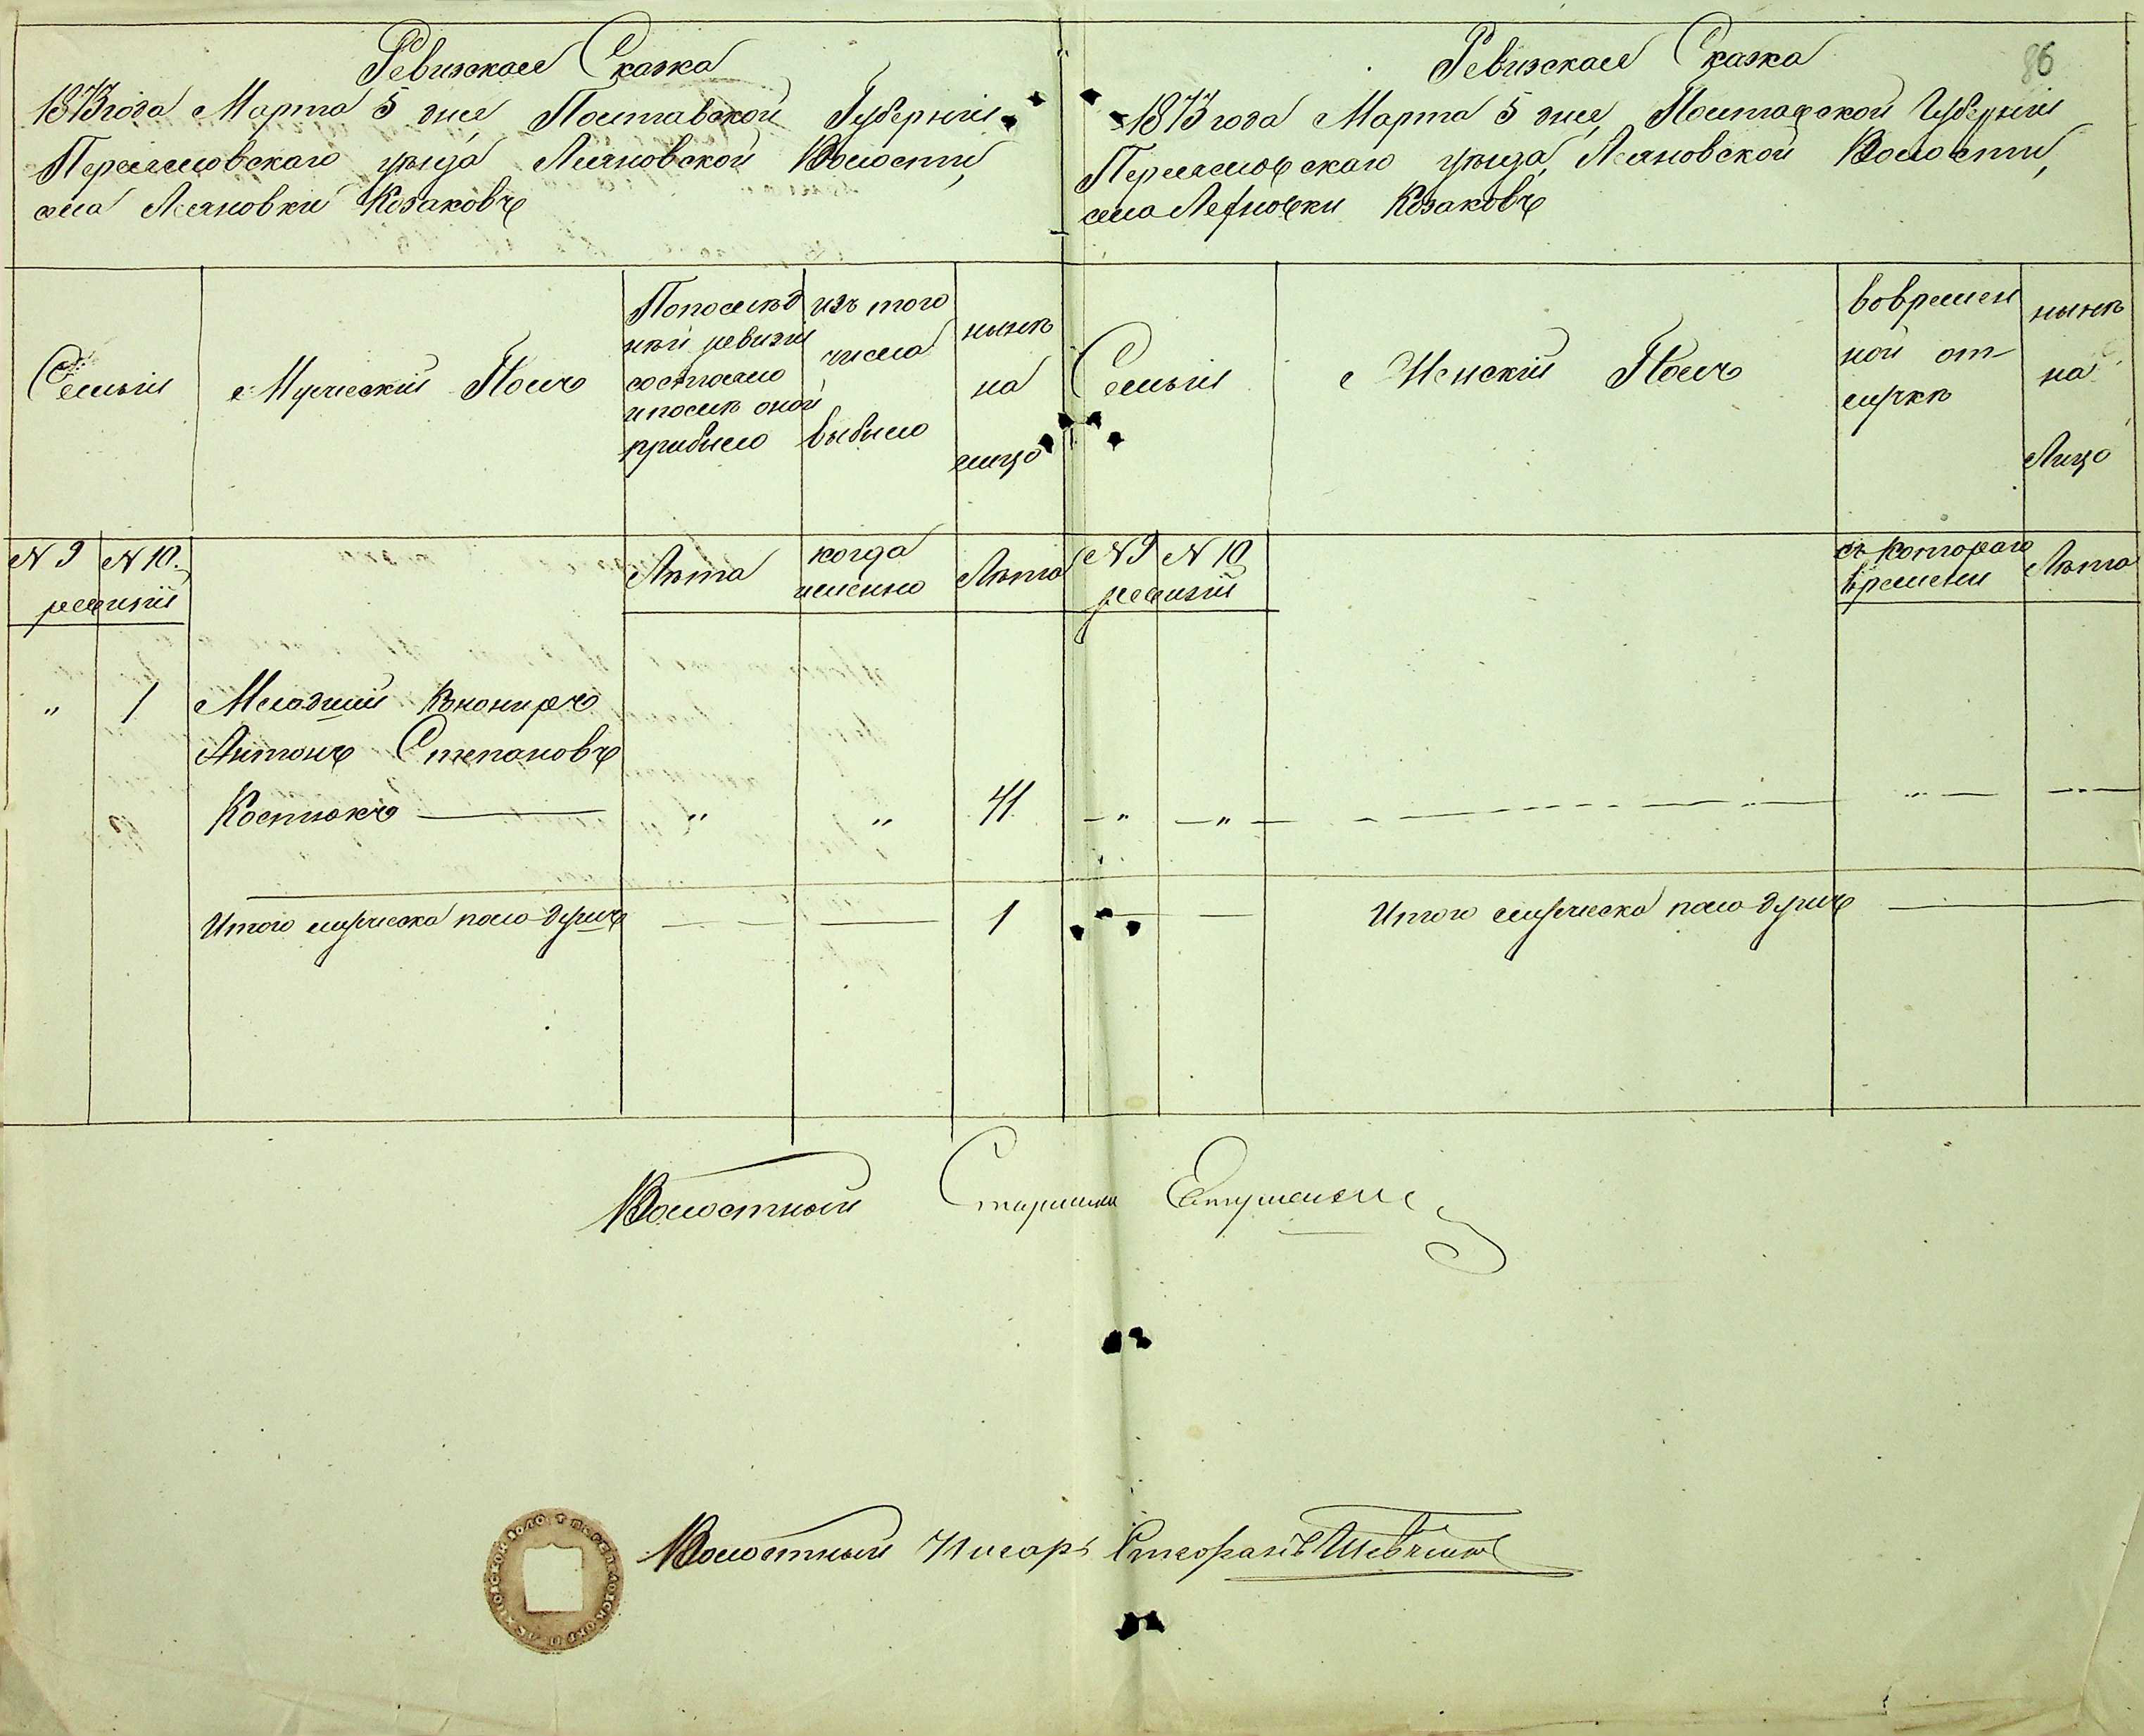 Ревизская Сказка
1873 года Марта 5 дня, Полтавской Губерніи
Переяславскаго уѣзда, Леляновской Волости,
села Леляновки Козаковъ
Ревизская Сказка
86
1873 года Марта 5 дня, Полтавской Губерніи
Переяславскаго уѣзда, Волости,
села Козаковъ
Семьи
Мужескій Полъ
Попослѣд
ней ревизіи
состояло
и послѣ оной
прибыло
изъ того
числа
выбыло
нынѣ
на
лицо
Семьи
Женскій Полъ
вовремен
ной от
лучкѣ
нынѣ
на
Лицо
N 9 N 10.
ревизіи
Лѣта
когда
именно
Лѣта
N 9 N 10
ревизіи
съ котораго
времени
Лѣта
" 1 Младшій Канониръ
Антонъ Степановъ
Костюкъ — " " 41 — " — " —
Итого мужеска пола душъ — — 1
Итого мужеска пола душъ —
Волостный Старшина
Волостный Писарь Стефанъ Шевченко